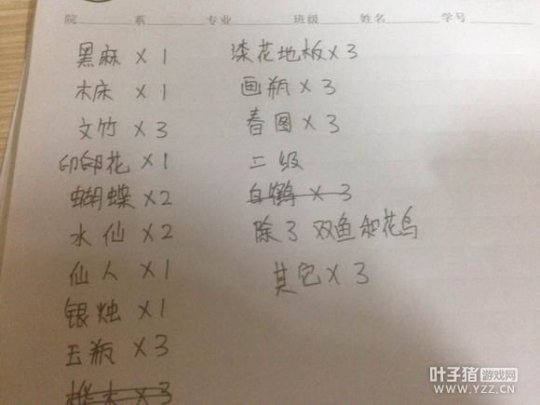 院 系 专业 班级 姓名 学号
黑麻 X 1
木床 X 1
文竹 X 3
卬卬花 X 1
蝴蝶 X2
水仙 X2
仙人 X 1
银烛 X 1
玉瓶 X 3
桦木 X 3
漆花地板 X 3
画瓶 X 3
春图 X 3
二级
白鹤 X 3
除了 双鱼和花鸟
其它 X 3
叶子猪 游戏网
WWW.YZZ.CN